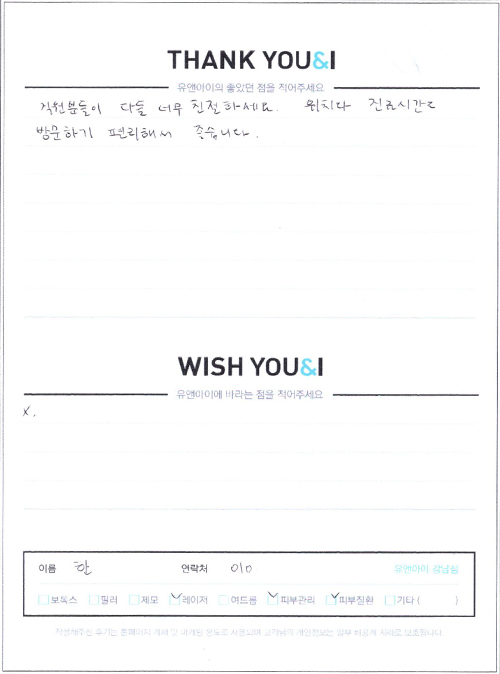 THANK YOU&I
유앤아이의 좋았던 점을 적어주세요
직원분들이 다들 너무 친절하세요. 위치나 진료시간도
방문하기 편리해서 좋습니다.
WISH YOU&I
유앤아이에 바라는 점을 적어주세요
x.
이름 한 연락처 010 유앤아이 강남점
보톡스 필러 제모 레이저 여드름 피부관리 피부질환 기타 ( )
작성해주신 후기는 홈페이지 게재 및 마케팅 용도로 사용되며 고객님의 개인정보는 일부 비공개 처리로 보호됩니다.